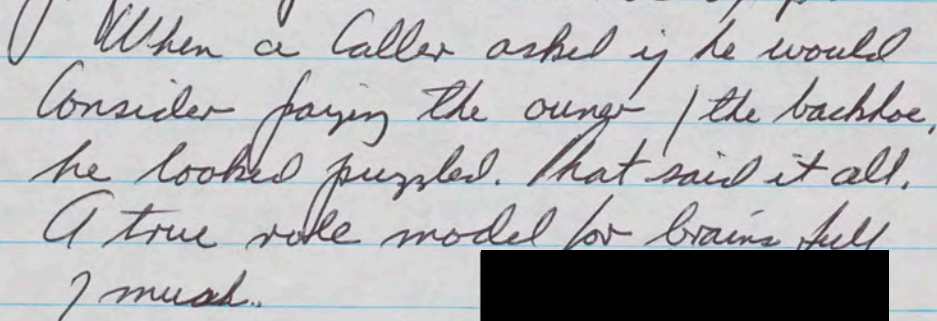 When a Caller asked if he would
Consider paying the owner of the backhoe,
he looked puzzled. That said it all.
A true role model for brains full
of mush.